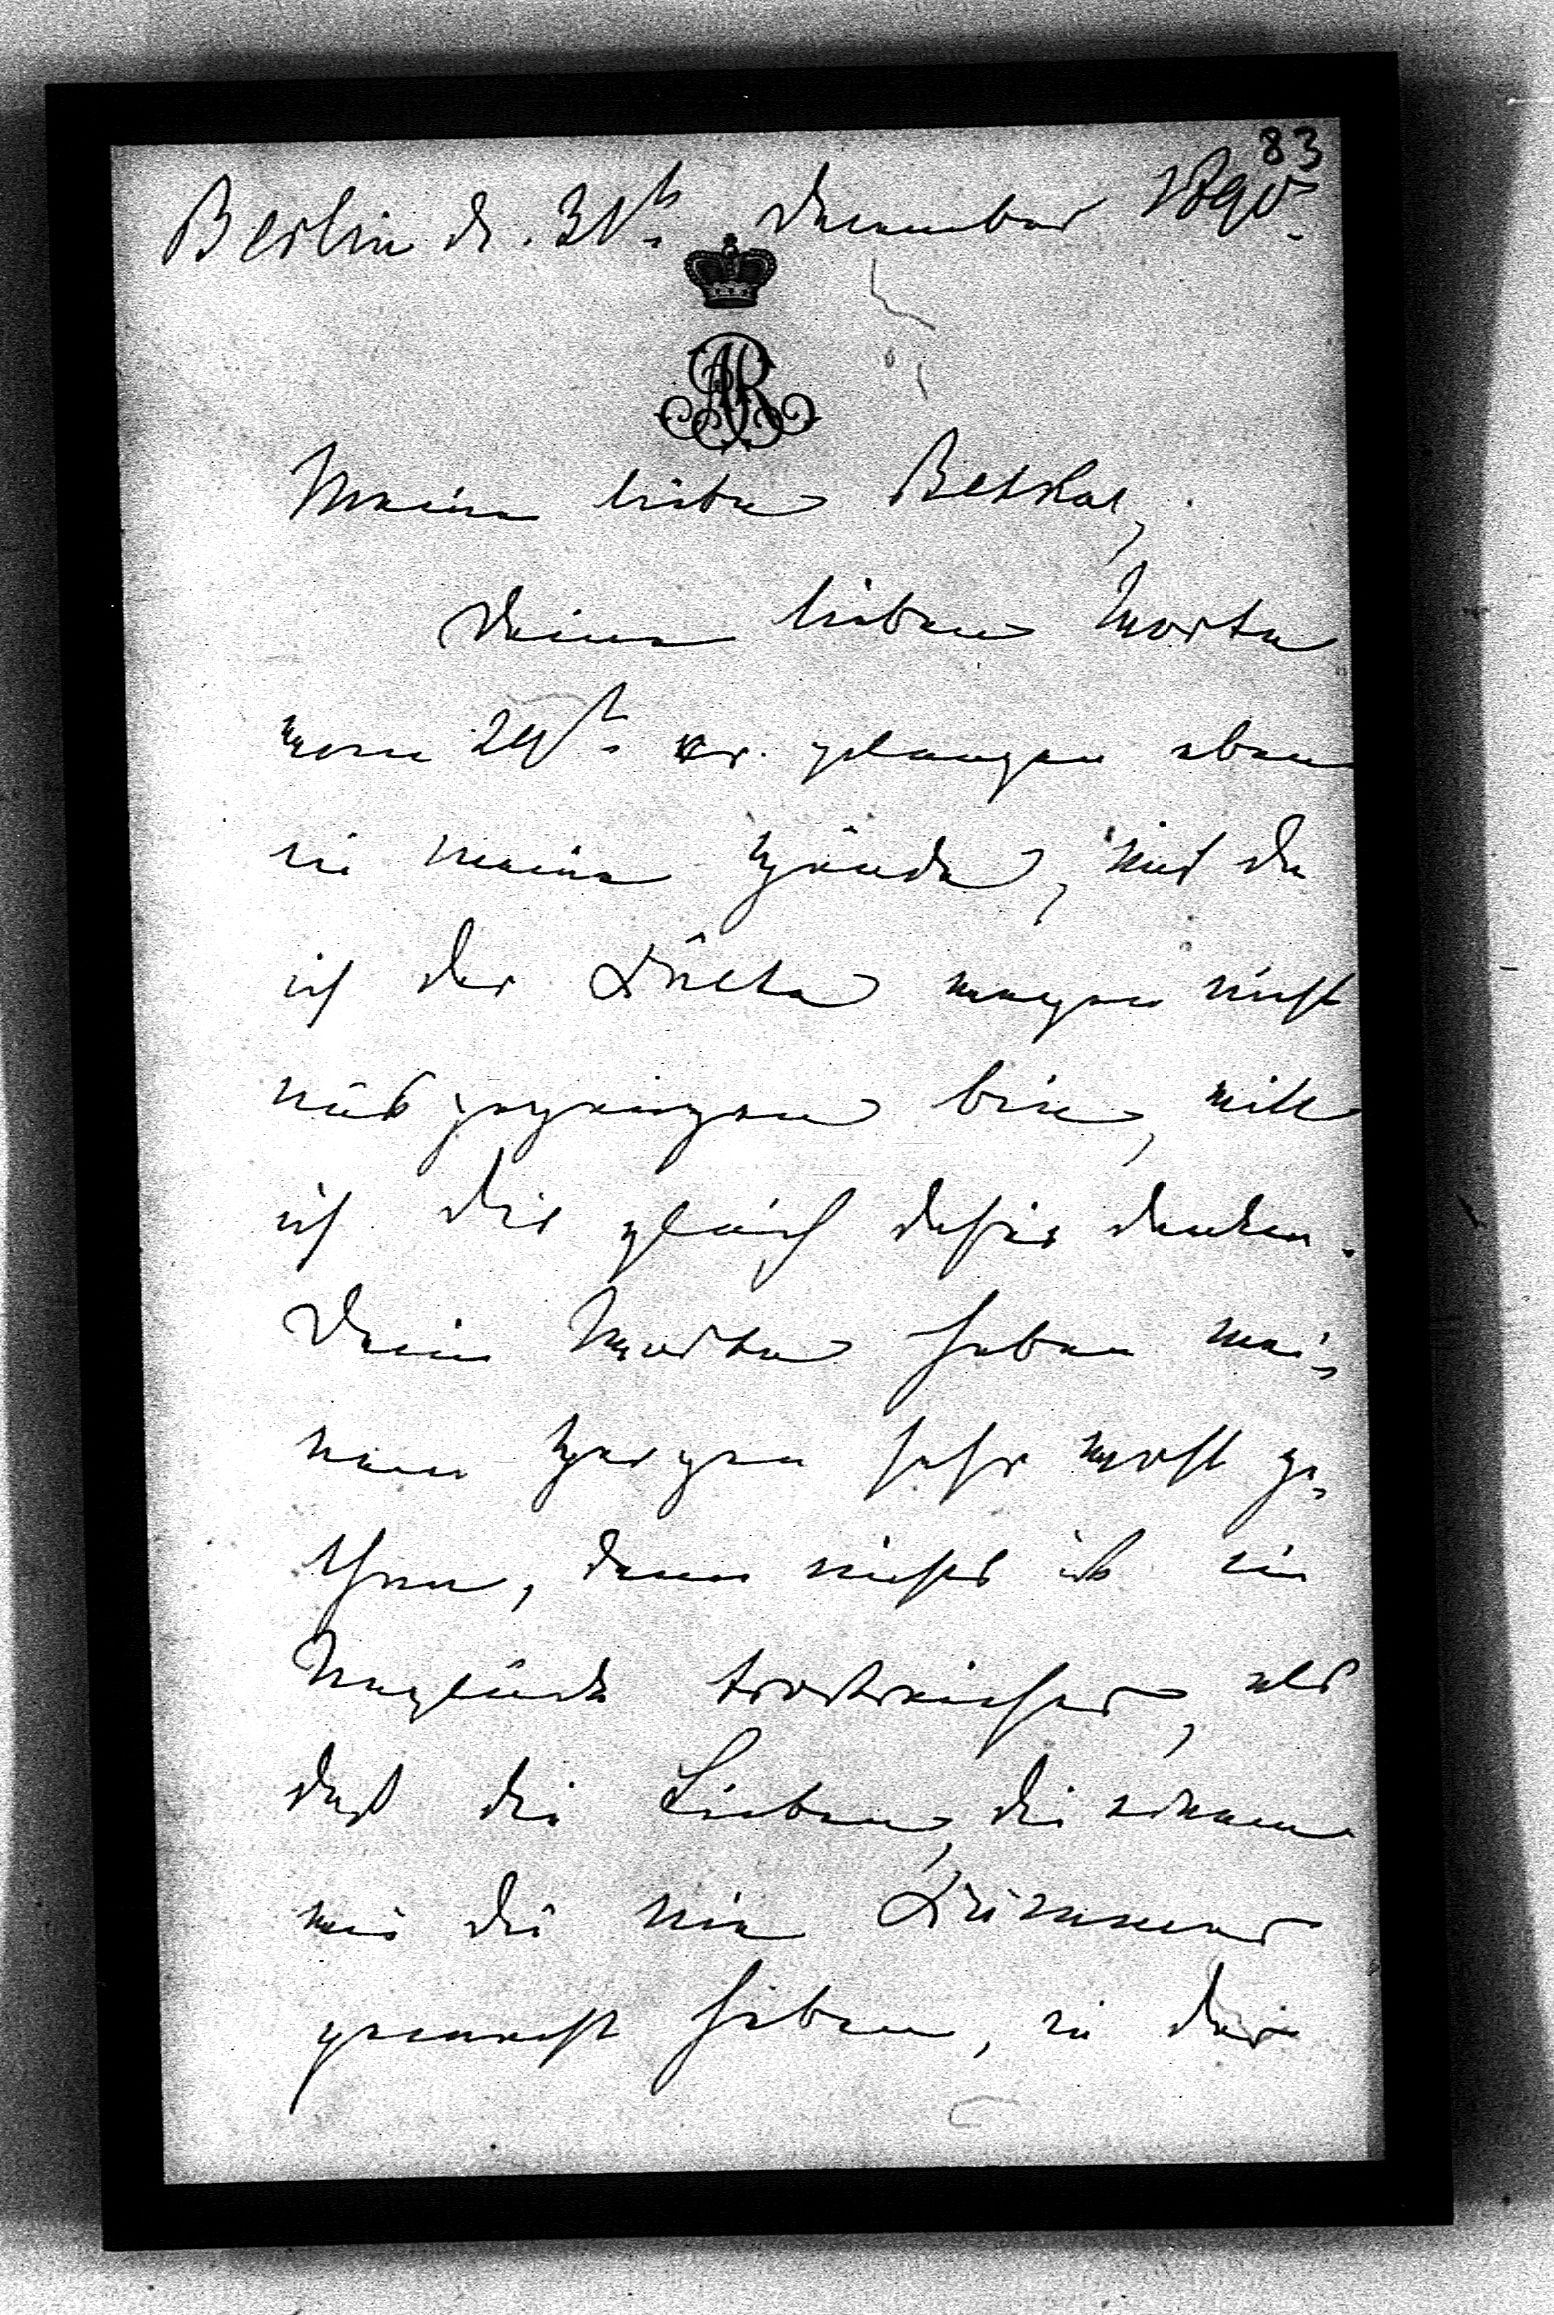 83
Berlin d. 31t. December 1890.
AR
Meine liebe
Deine lieben Worte
vom 29t. cr. gelangen eben
in meine Hände, und da
ich der Kälte wegen nicht
ausgegangen bin, will
ich Dir gleich dafür danken.
Deine Worte haben mei-
nem Herzen sehr wohl ge-
than, denn nichts ist im
Unglück trostreicher, als
daß die Lieben, die einem
wie Du nie Kummer
gemacht haben, in der